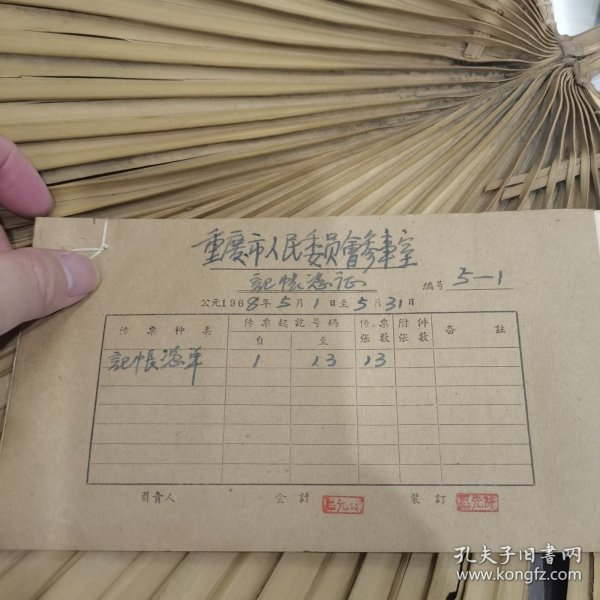 重慶市人民委員會參事室
記帳憑証
編号 5—1
公元1968年5月1日至5月31日
传票种类 传票起訖号碼 传票張数 附件張数 备註
自 至
記帳憑单 1 13 13
負責人 会計 装訂
孔夫子旧书网
www.kongfz.com